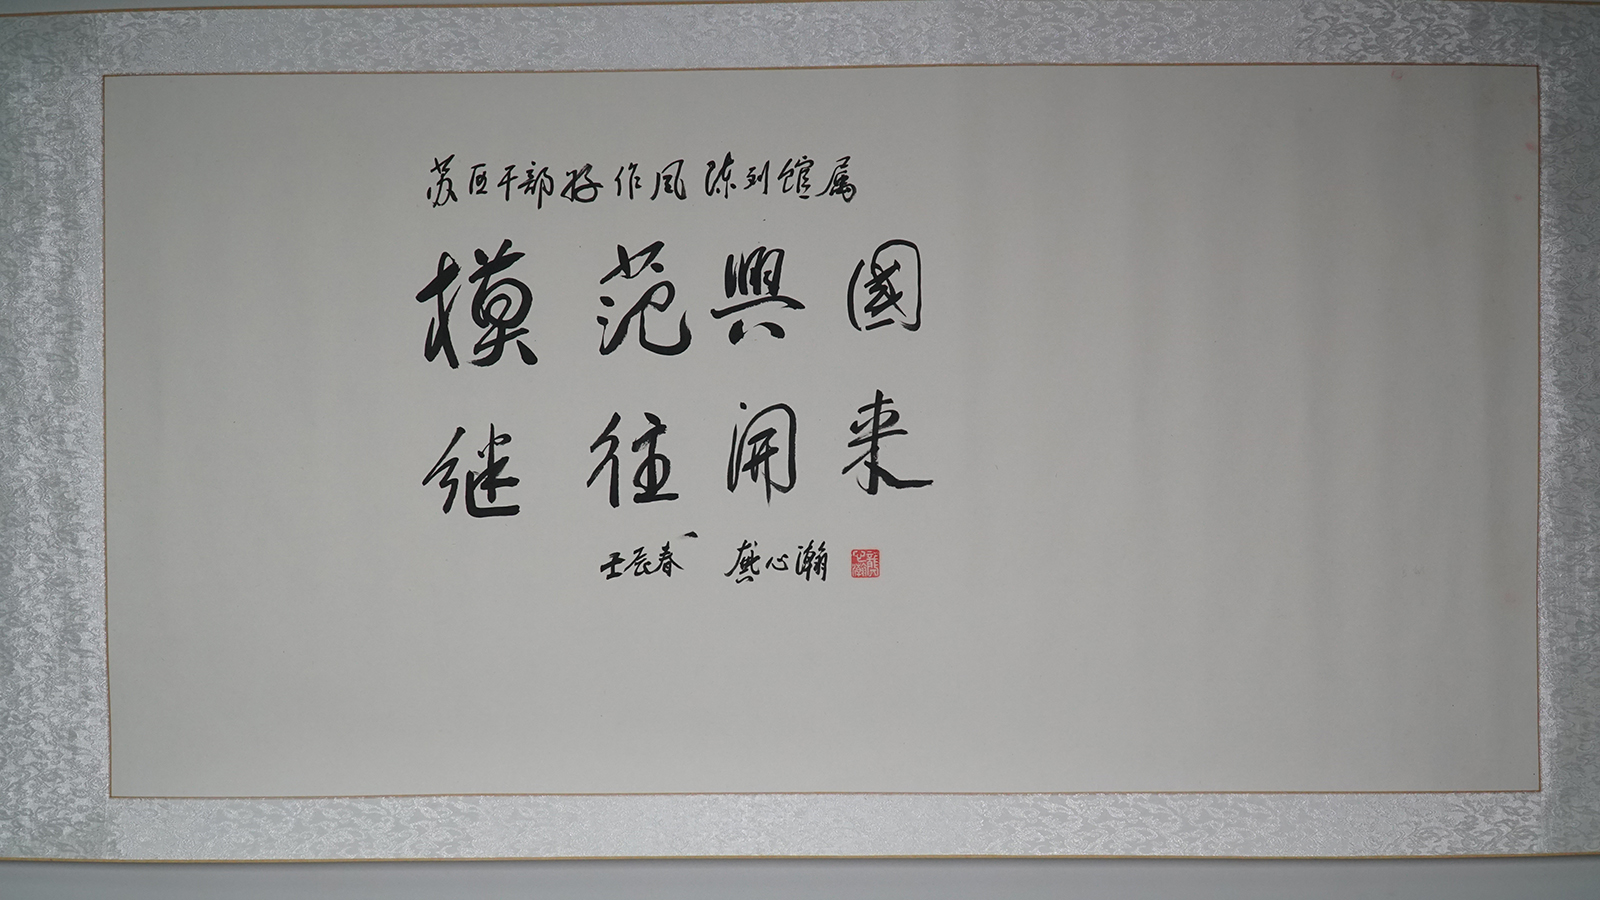 苏区干部好作风陈列馆属
模范興國
继往開来
壬辰春 龚心瀚